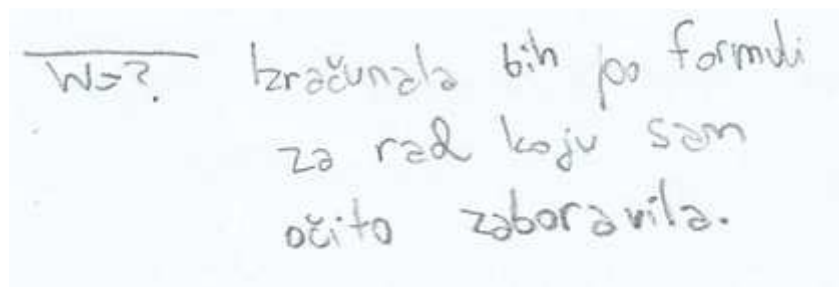 W=?. Izračunala bih po formuli
za rad koju sam
očito zaboravila.